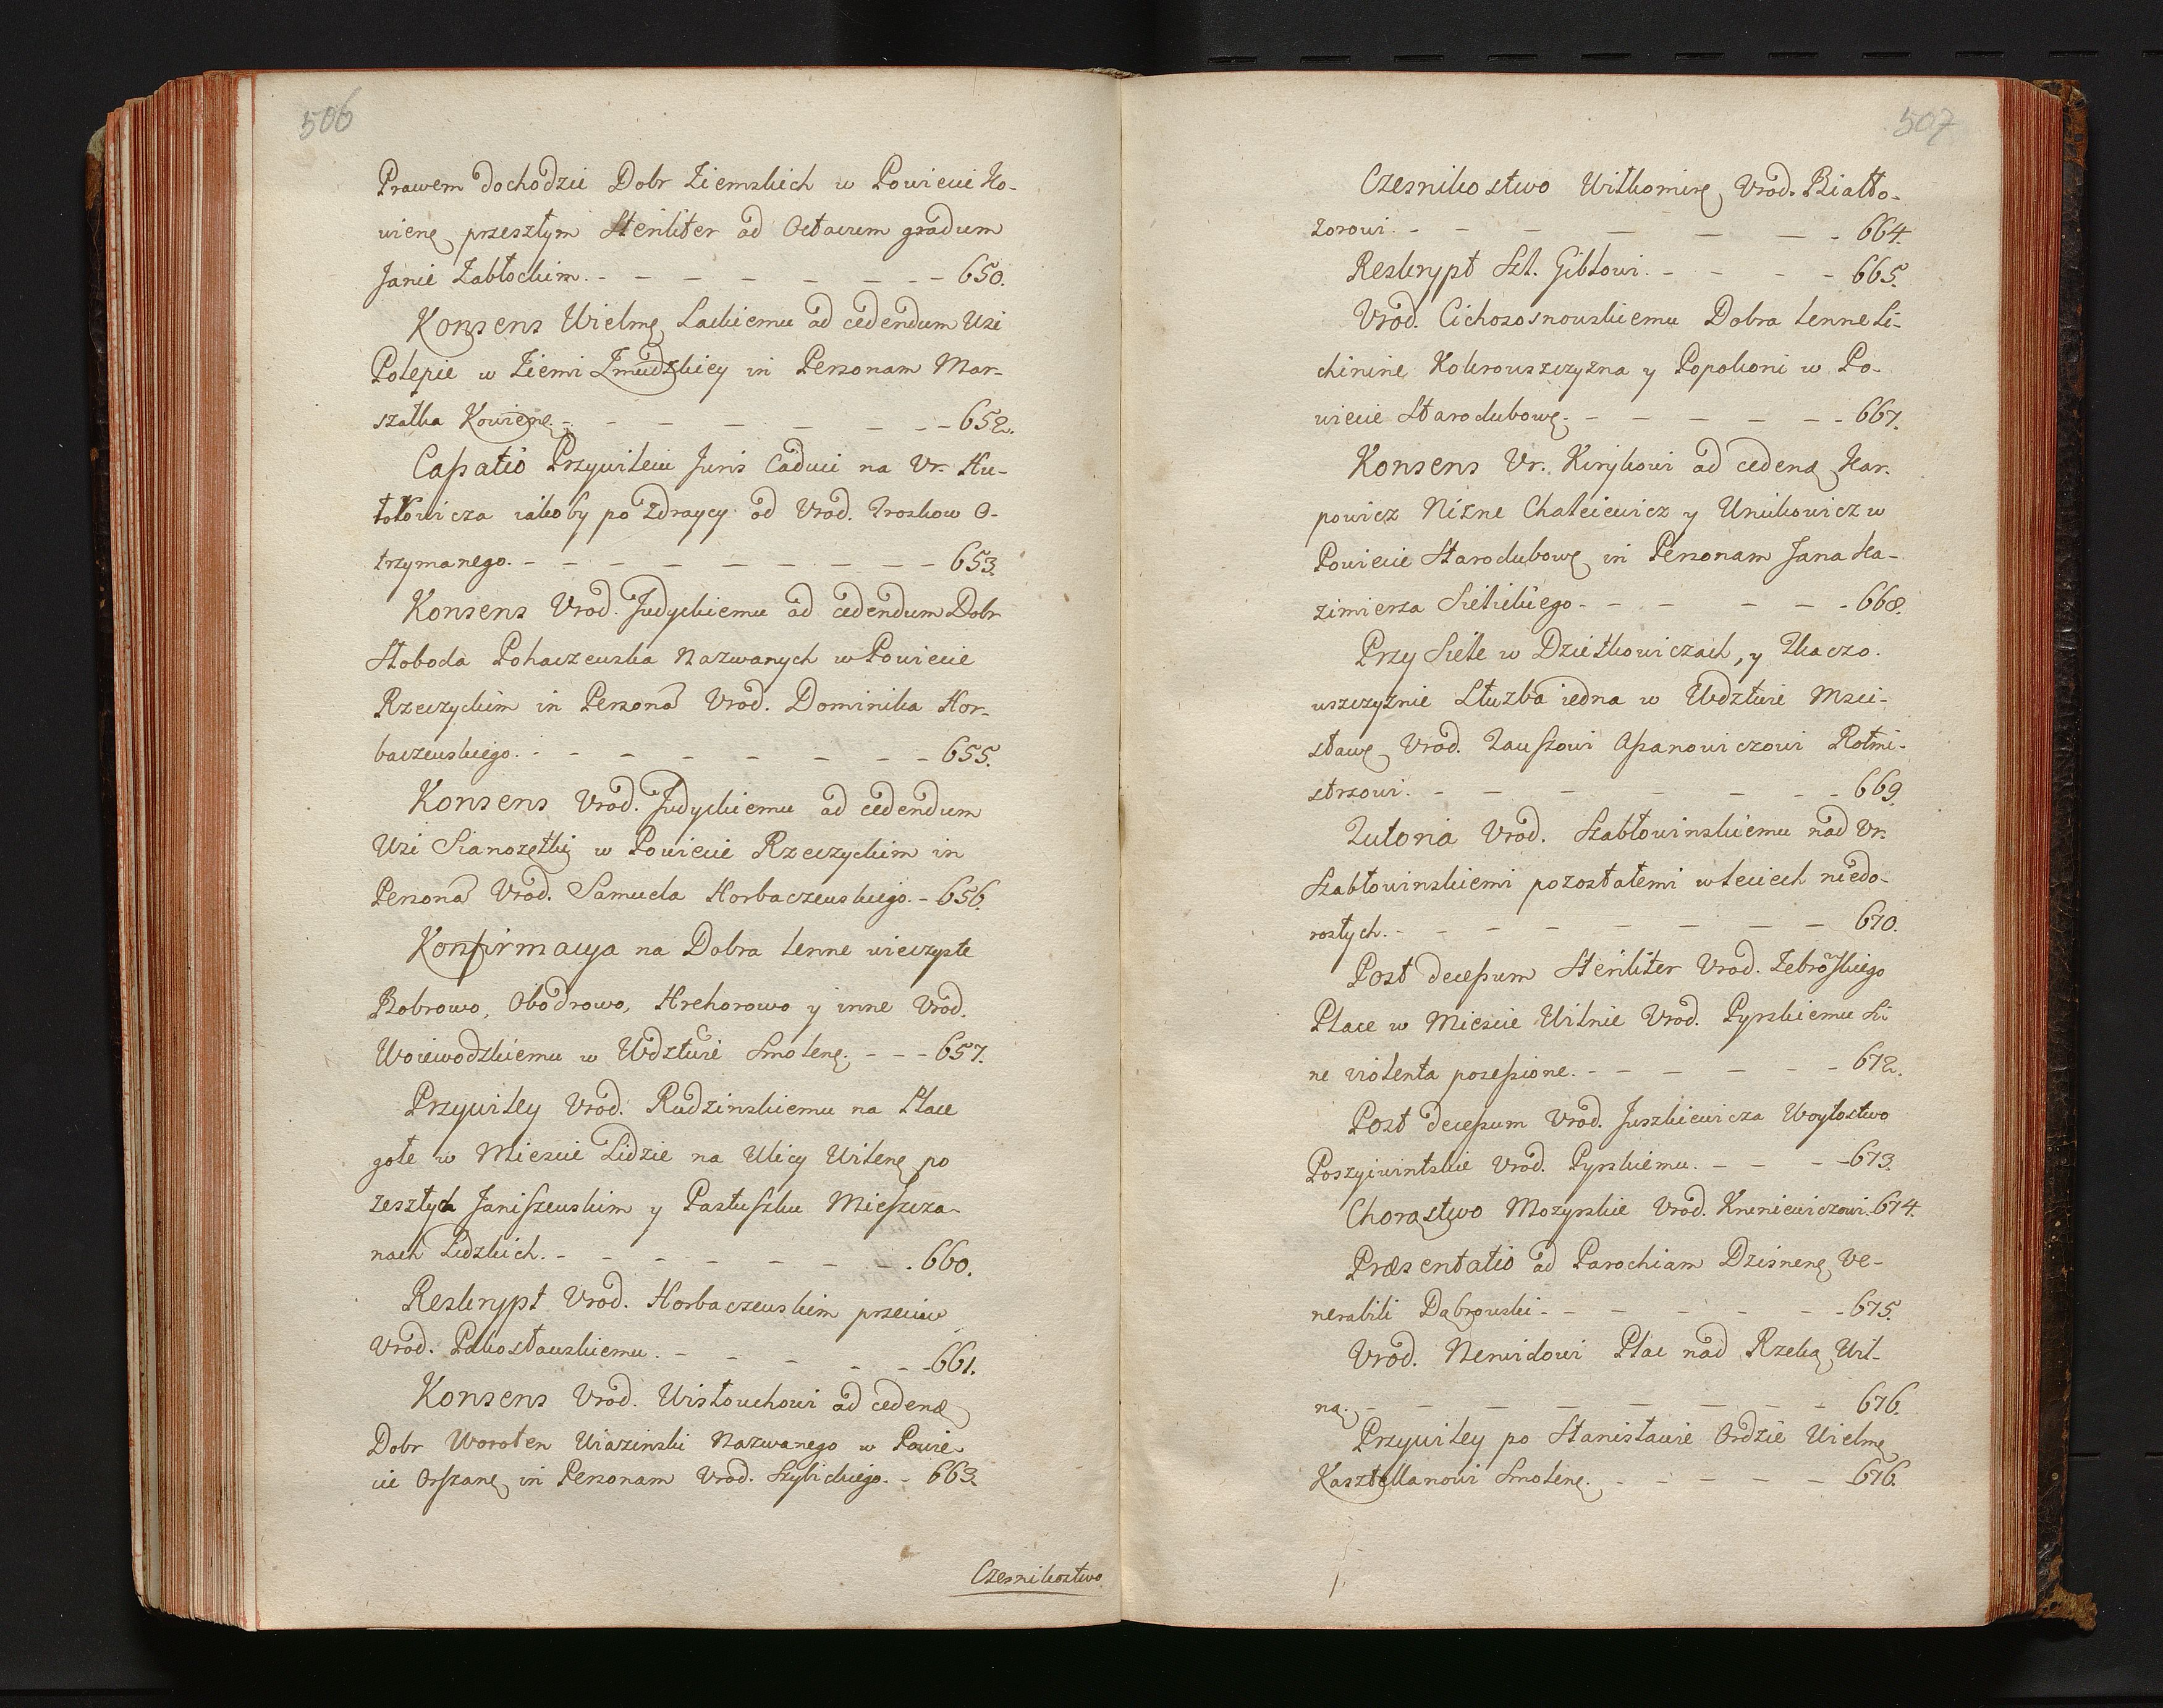 506
Prawem dochodzić Dobr Ziemskich w Powiecie Ko-
wienę przeszłym Steriliter ad Octavum gradum
Janie Zabłockim. - - - - - - - - 650.
Konsens Wielmę Lackiemu ad cedendum Wsi
Polepie w Ziemi Zmudzkiey in Personam Mar-
szałka Kowienę. - - - - - - - - 652.
Cassatio Przywileiu Juris Caduci na Ur. Hu-
torowicza iakoby po Zdraycy od Urod. Troskow O-
trzymanego. - - - - - - - - - 653.
Konsens Urod. Judyckiemu ad cedendum Dobr
Słoboda Pohaczewska Nazwanych w Powiecie
Rzeczyckim in Personã Urod. Dominika Hor-
baczewskiego. - - - - - - - - 655.
Konsens Urod. Judyckiemu ad cedendum
Wsi Sianozętki w Powiecie Rzeczyckim in
Personã Urod. Samuela Horbaczewskiego. - 656.
Konfirmacya na Dobra lenne wieczyste
Bobrowo, Obodrowo, Hrehorowo y inne Urod.
Woiewodzkiemu w Wdztwie Smolenę. - - - 657.
Przywiley Urod. Rudzinskiemu na Place
gołe w Miescie Lidzie na Ulicy Wilenę po
zeszłych Janiszewskim y Pastuszku Mieszcza-
nach Lidzkich. - - - - - - - 660.
Reskrypt Urod. Horbaczewskim przeciw
Urod. Pakosławskiemu. - - - - - - 661.
Konsens Urod. Wisłouchowi ad cedenđ
Dobr Woroten Wiazinski Nazwanego w Powie-
cie Orszanę in Personam Urod. Szybickiego. - 663.
Czesnikostwo
507
Czesnikostwo Wiłkomirę Urod. Białło-
zorowi. - - - - - - - 664.
Reskrypt Szl. Gibłowi. - - - - 665.
Urod. Cichososnowskiemu Dobra lenne Li-
chinine Kokrowszczyzna y Popokoni w Po-
wiecie Starodubowę. - - - - - - 667.
Konsens Ur. Kirykowi ad cedenđ Kar-
powicz Nizne Chalciewicz y Unukowicz w
Powiecie Starodubowę in Personam Jana Ka-
zimierza Sielickiego. - - - - - - 668.
Przy Siele w Dzietkowiczach, y Tkaczo-
wszczyznie Służba iedna w Wdztwie Msci-
sławę Urod. Zauszowi Assanowiczowi Rotmi-
strzowi. - - - - - - - 669
Tutoria Urod. Szabłowinskiemu nad Ur.
Szabłowinskiemi pozostałemi w leciech niedo-
rosłych. - - - - - - - - 670.
Post decessum Steriliter Urod. Zebrowskiego
Place w Miescie Wilnie Urod. Pyrskiemu Si
ne violenta possessione. - - - - - - 672.
Post decessum Urod. Juszkiewicza Woytostwo
Poszyiwintskie Urod. Pyrskiemu. - - - - 673.
Chorąstwo Mozyrskie Urod. Kreniewiczowi. 674.
Præsentatio ad Parochiam Dzisnenę Ve-
nerabili Dąbrowski - - - - - - 675.
Urod. Newidowi Plac nad Rzeką Wil-
ną. - - - - - - - - 676.
Przywiley po Stanisławie Ordzie Wielmę
Kasztellanowi Smolenę. - - - - - 676.